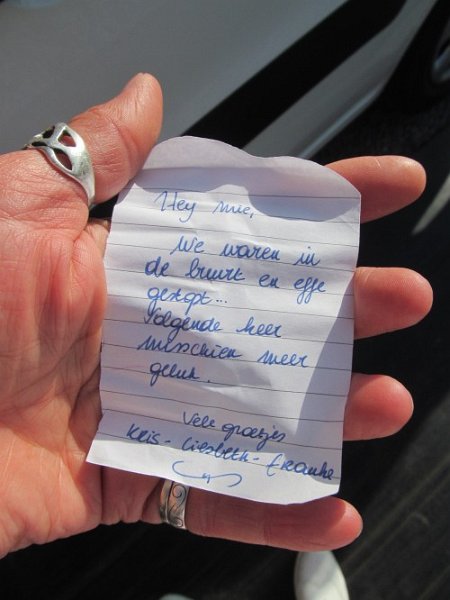 Hey mie,
We waren in
de buurt en effe
gestopt...
Volgende keer
misschien meer
geluk.
Vele groetjes
Kris - Liesbeth - Franka